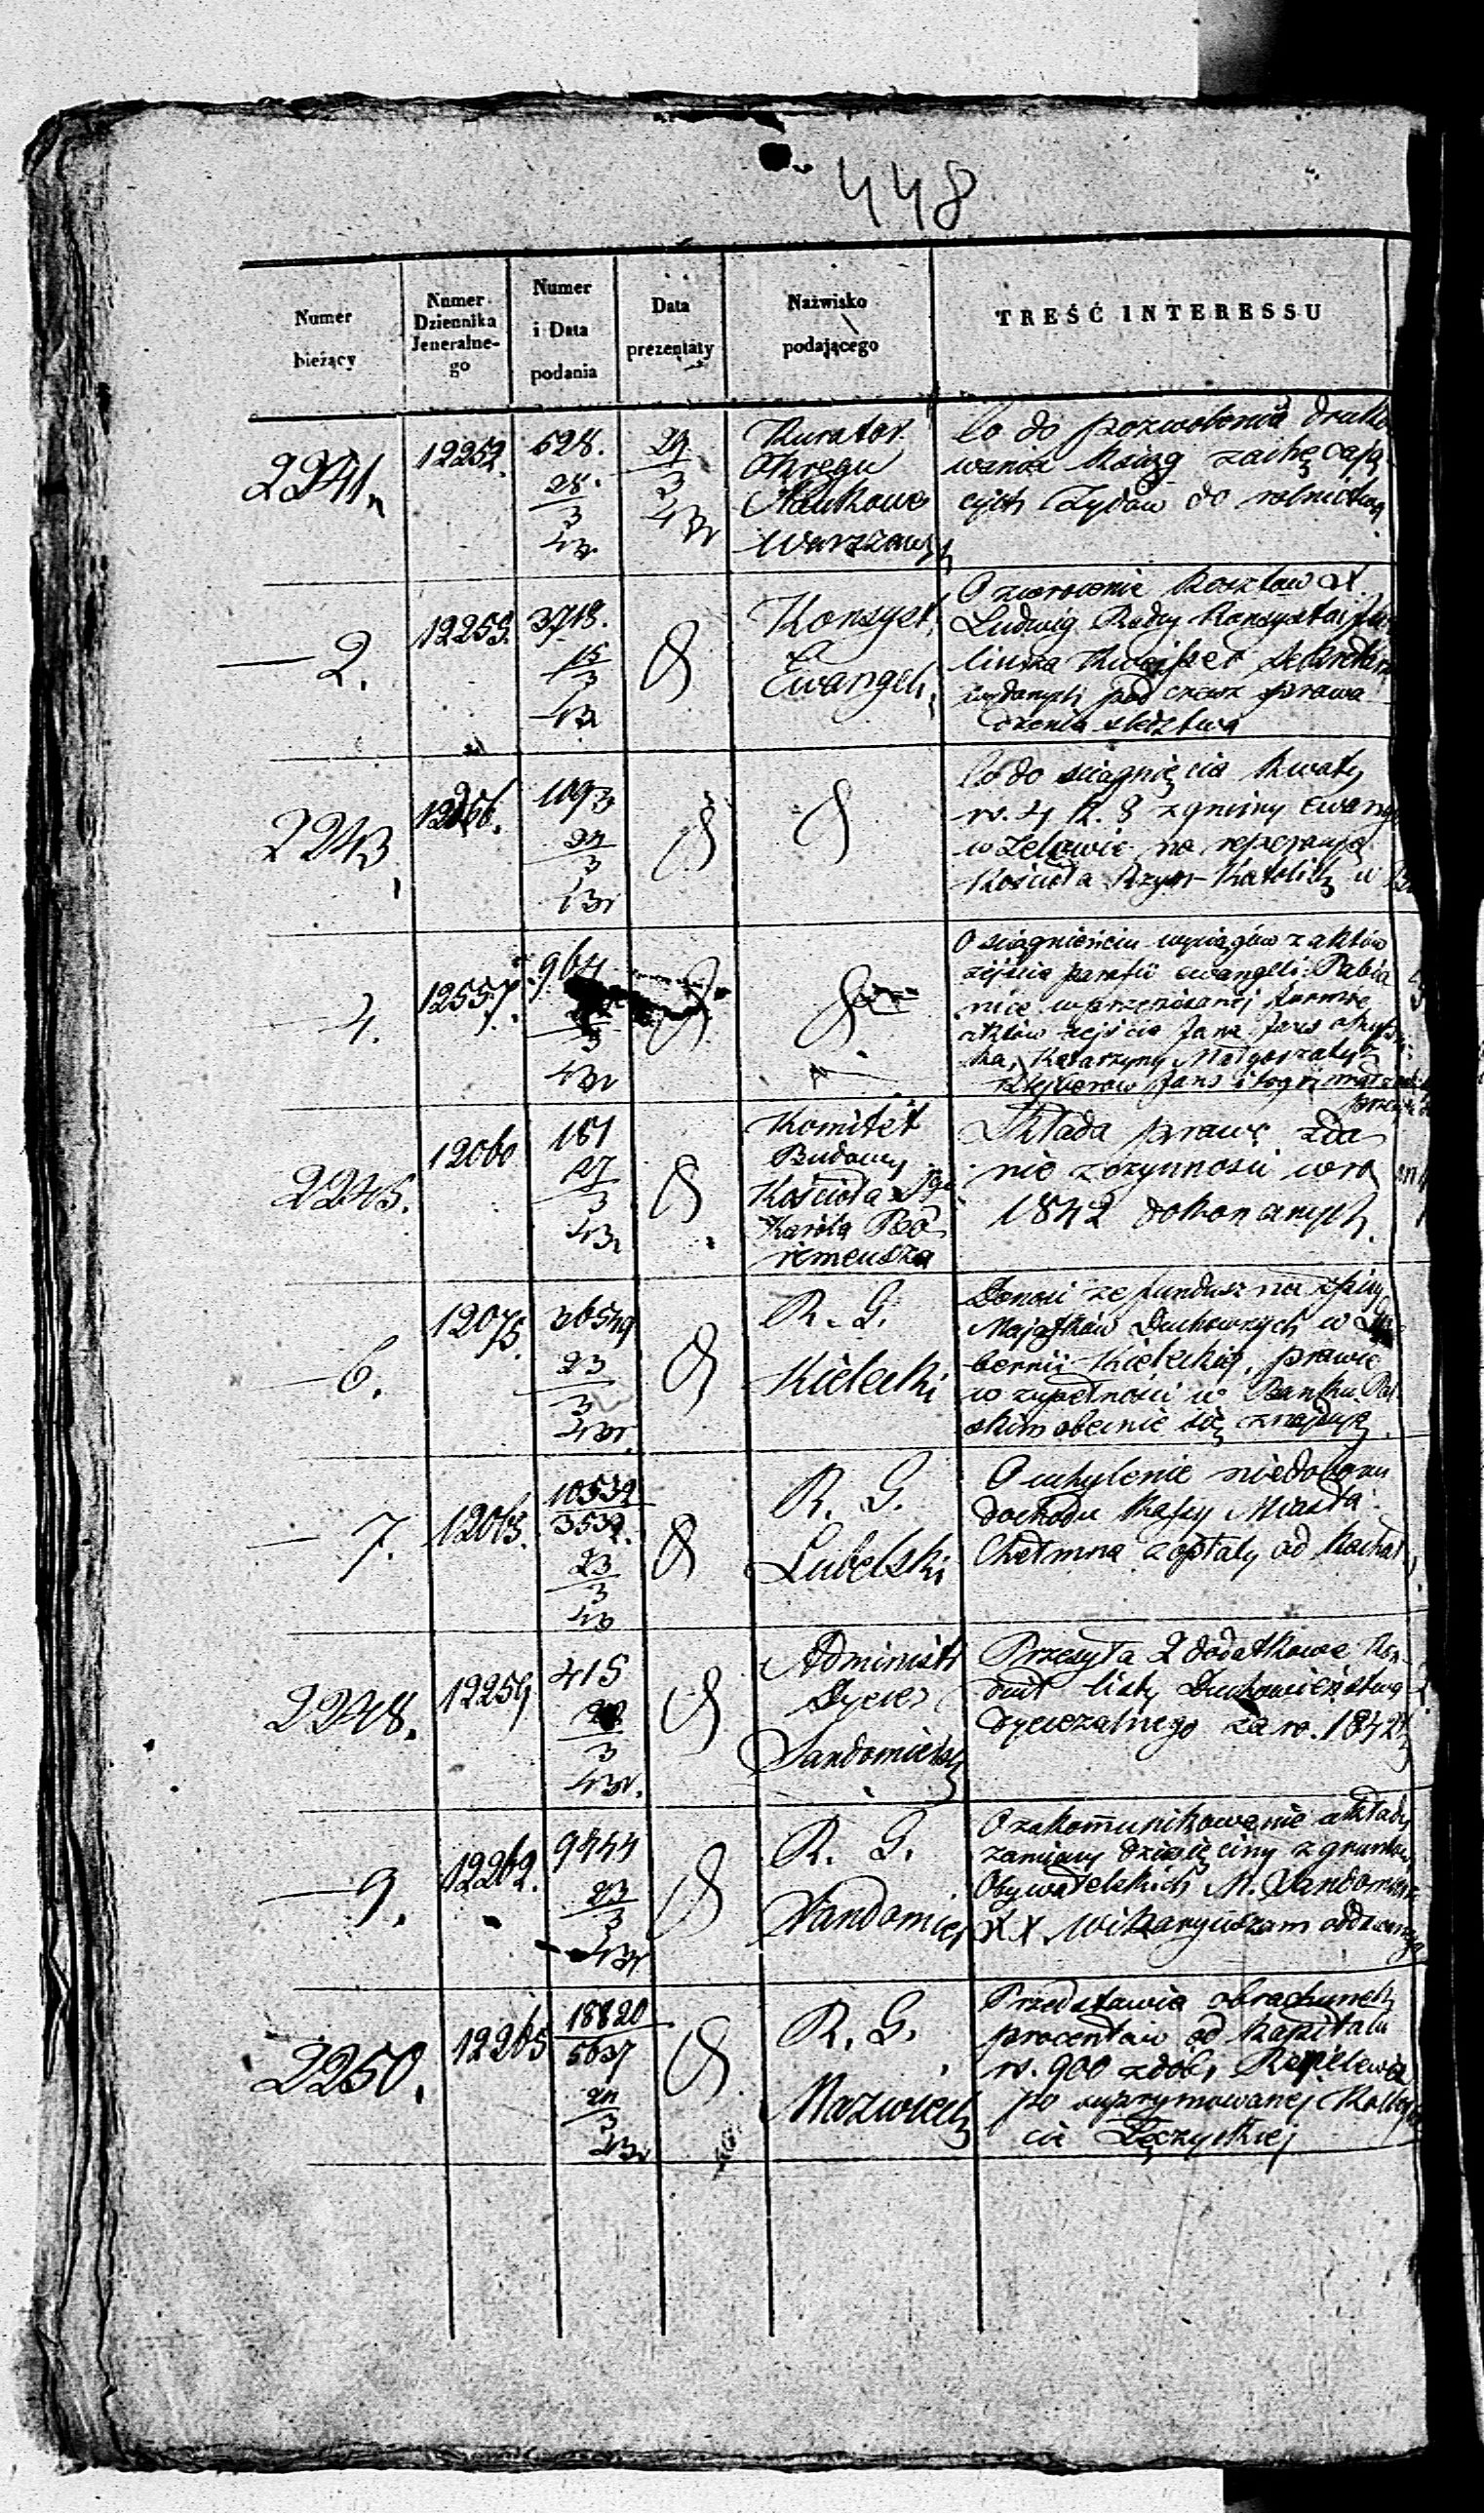 448
Numer bieżący
Numer Dziennika Jeneralne-go
Numer i Data podania
Data prezentaty
Nazwisko podającego
TREŚĆ INTERESSU
2241.
12252.
528.
28.
3
43.
29
3
43r
Kurator
Okręgu
Naukowo
Warszaws
Co do pozwolenia druko
wania Książg zachęcają
cych Żydów do rolnictwa
2.
12255.
3718.
15
3
43
Konsyst.
Ewangeli.
O zwrócenie Kosztów X.
Ludwig Radcy Konsystorj
wydanych pod czas prowa
dzenia śledztwa
2243
12256.
1093
3
43r
Co do ściągnięcia Kwoty
rs. 4 k. 8 z gminy Ewang
w Zelowie na reperacją
Kościoła Rzym-Katolick w
4.
12557.
964
3
43r
O ściągnieniu wyciągów z aktów
zejścia parafii ewangeli. Pabia
nice w przepisanej formie
aktów zejścia Jana Jans
ka, Katarzyny Małgorzaty z
2245.
12060
181
27
3
43r
Komitet
Budowy
Kościoła Sgo
Karola Bo
romeusza
Składa prawe zda
nie z czynności w ro
1842 dokonanych.
6.
12075.
36549
23
3
43r.
R. G.
Kielecki
Donosi że fundusz na
Majątków Duchownych w Gu
bernii Kieleckiej, prawie
w zupełności w Banku Pol
skim obecnie się znajduje
7.
12063.
10539
3539.
23
3
43
R. G.
Lubelski
O uchylenie niedoboru
dochodu Kassy Miasta
Chełmna z opłaty od
2248.
12259
415
3
43r.
Administr
Dyeces
Sandomiersk
Przesyła 2 dodatkowe Kon-
duit listy Duchowieństwa
dyecezalnego za ro. 1842
9.
12262.
9444
23
3
43r
R. G.
Sandomier
O zakommunikowanie układu
zamiany dziesięciny z gruntów
Obywatelskich M. Sandomierz
XX Wikaryuszom oddawanej
2250.
12265
18820
5637
24
3
43r
R. G.
Mazowieck
Przedstawia obrachunek
procentów od Kapitału
rs. 900 z dóbr
po supprymowanej Kolleg
cie Łęczyckiej